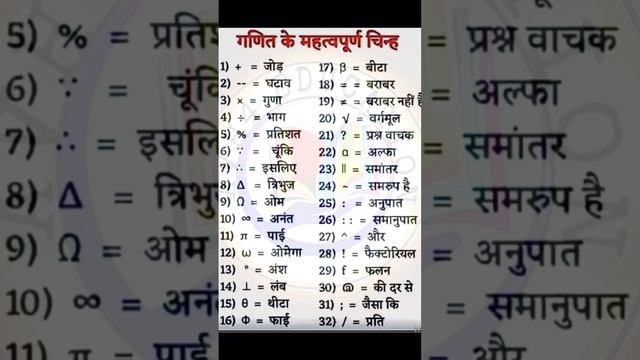 गणित के महत्वपूर्ण चिन्ह
1) + = जोड़
2) -- = घटाव
3) × = गुणा
4) ÷ = भाग
5) % = प्रतिशत
6) ∵ = चूंकि
7) ∴ = इसलिए
8) Δ = त्रिभुज
9) Ω = ओम
10) ∞ = अनंत
11) π = पाई
12) ω = ओमेगा
13) ° = अंश
14) ⊥ = लंब
15) θ = थीटा
16) Φ = फाई
17) β = बीटा
18) = = बराबर
19) ≠ = बराबर नहीं है
20) √ = वर्गमूल
21) ? = प्रश्न वाचक
22) α = अल्फा
23) || = समांतर
24) ~ = समरुप है
25) : = अनुपात
26) : : = समानुपात
27) ^ = और
28) ! = फैक्टोरियल
29) f = फलन
30) @ = की दर से
31) ; = जैसा कि
32) / = प्रति
5) % = प्रतिश
6) ∵ = चूंकि
7) ∴ = इसलि
8) Δ = त्रिभु
9) Ω = ओम
10) ∞ = अनं
11) π = पाई
= प्रश्न वाचक
= अल्फा
= समांतर
= समरुप है
= अनुपात
= समानुपात
= और